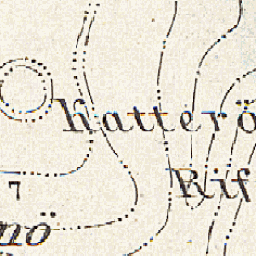 Katterö
Rif
7
nö